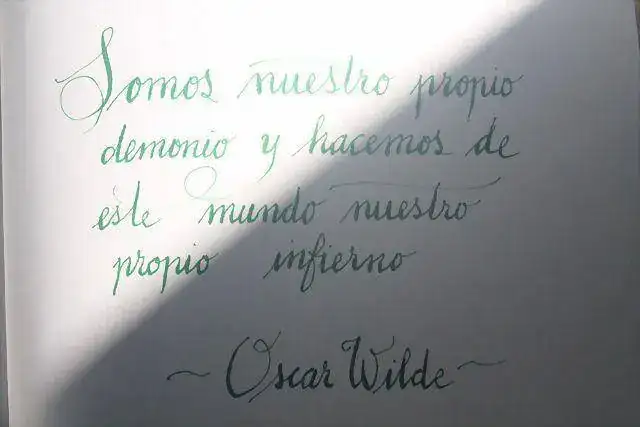 Somos nuestro propio
demonio y hacemos de
este mundo nuestro
propio infierno
~ Oscar Wilde ~